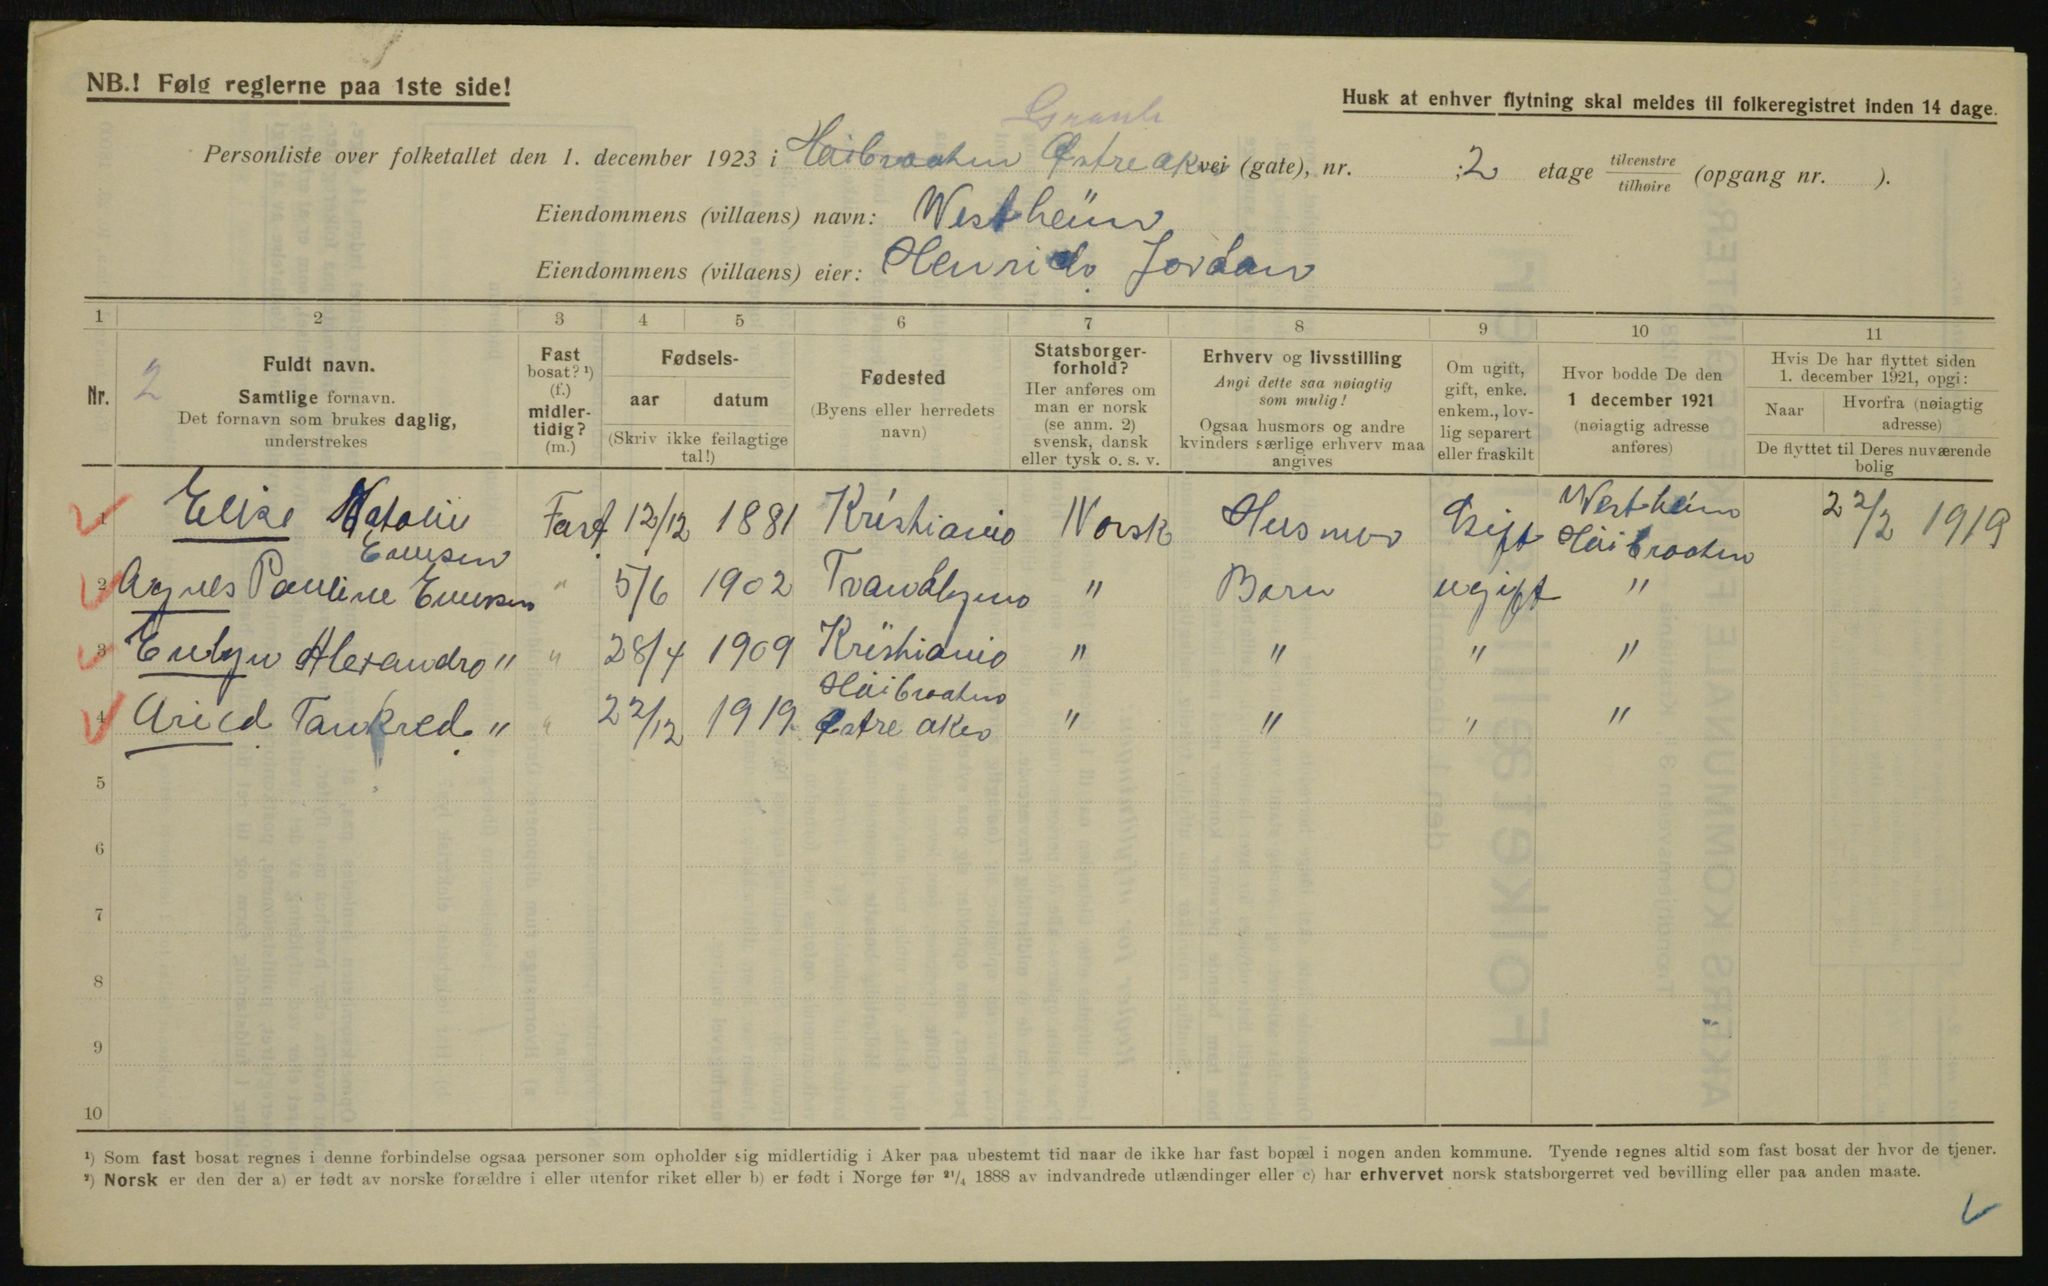 NB.! Følg reglerne paa 1ste side!
Husk at enhver flytning skal meldes til folkeregistret inden 14 dage.
Personliste over folketallet den 1. december 1923 i Høibraaten Østre aker vei (gate), nr. ; 2 etage tilvenstre / tilhøire (opgang nr. ).
Eiendommens (villaens) navn: Westheim
Eiendommens (villaens) eier: Henrik Jordan
1 2 3 4 5 6 7 8 9 10 11
Nr.
2
Fuldt navn.
Samtlige fornavn.
Det fornavn som brukes daglig,
understrekes
Fast
bosat? ¹)
(f.)
midler-
tidig?
(m.)
Fødsels-
aar datum
(Skriv ikke feilagtige
tal!)
Fødested
(Byens eller herredets
navn)
Statsborger-
forhold?
Her anføres om
man er norsk
(se anm. 2)
svensk, dansk
eller tysk o. s. v.
Erhverv og livsstilling
Angi dette saa nøiagtig
som mulig!
Ogsaa husmors og andre
kvinders særlige erhverv maa
angives
Om ugift,
gift, enke.
enkem., lov-
lig separert
eller fraskilt
Hvor bodde De den
1 december 1921
(nøiagtig adresse
anføres)
Hvis De har flyttet siden
1. december 1921, opgi:
Naar
Hvorfra (nøiagtig
adresse)
De flyttet til Deres nuværende
bolig
1 Elise Natalie Fast 12/12 1881 Kristiania Norsk Husmor Gift Westheim 22/2 1919
Høibraaten
2 Agnes Pauline " 5/6 1902 Trondhjem " Barn ugift "
3 Evelyn Alexandra " " 28/4 1909 Kristiania " " " "
Høibraaten
4 Arild Tankred " " 22/12 1919 Østre aker " " " "
5
6
7
8
9
10
¹) Som fast bosat regnes i denne forbindelse ogsaa personer som opholder sig midlertidig i Aker paa ubestemt tid naar de ikke har fast bopæl i nogen anden kommune. Tyende regnes altid som fast bosat der hvor de tjener.
²) Norsk er den der a) er født av norske forældre i eller utenfor riket eller b) er født i Norge før ²¹/₄ 1888 av indvandrede utlændinger eller c) har erhvervet norsk statsborgerret ved bevilling eller paa anden maate.